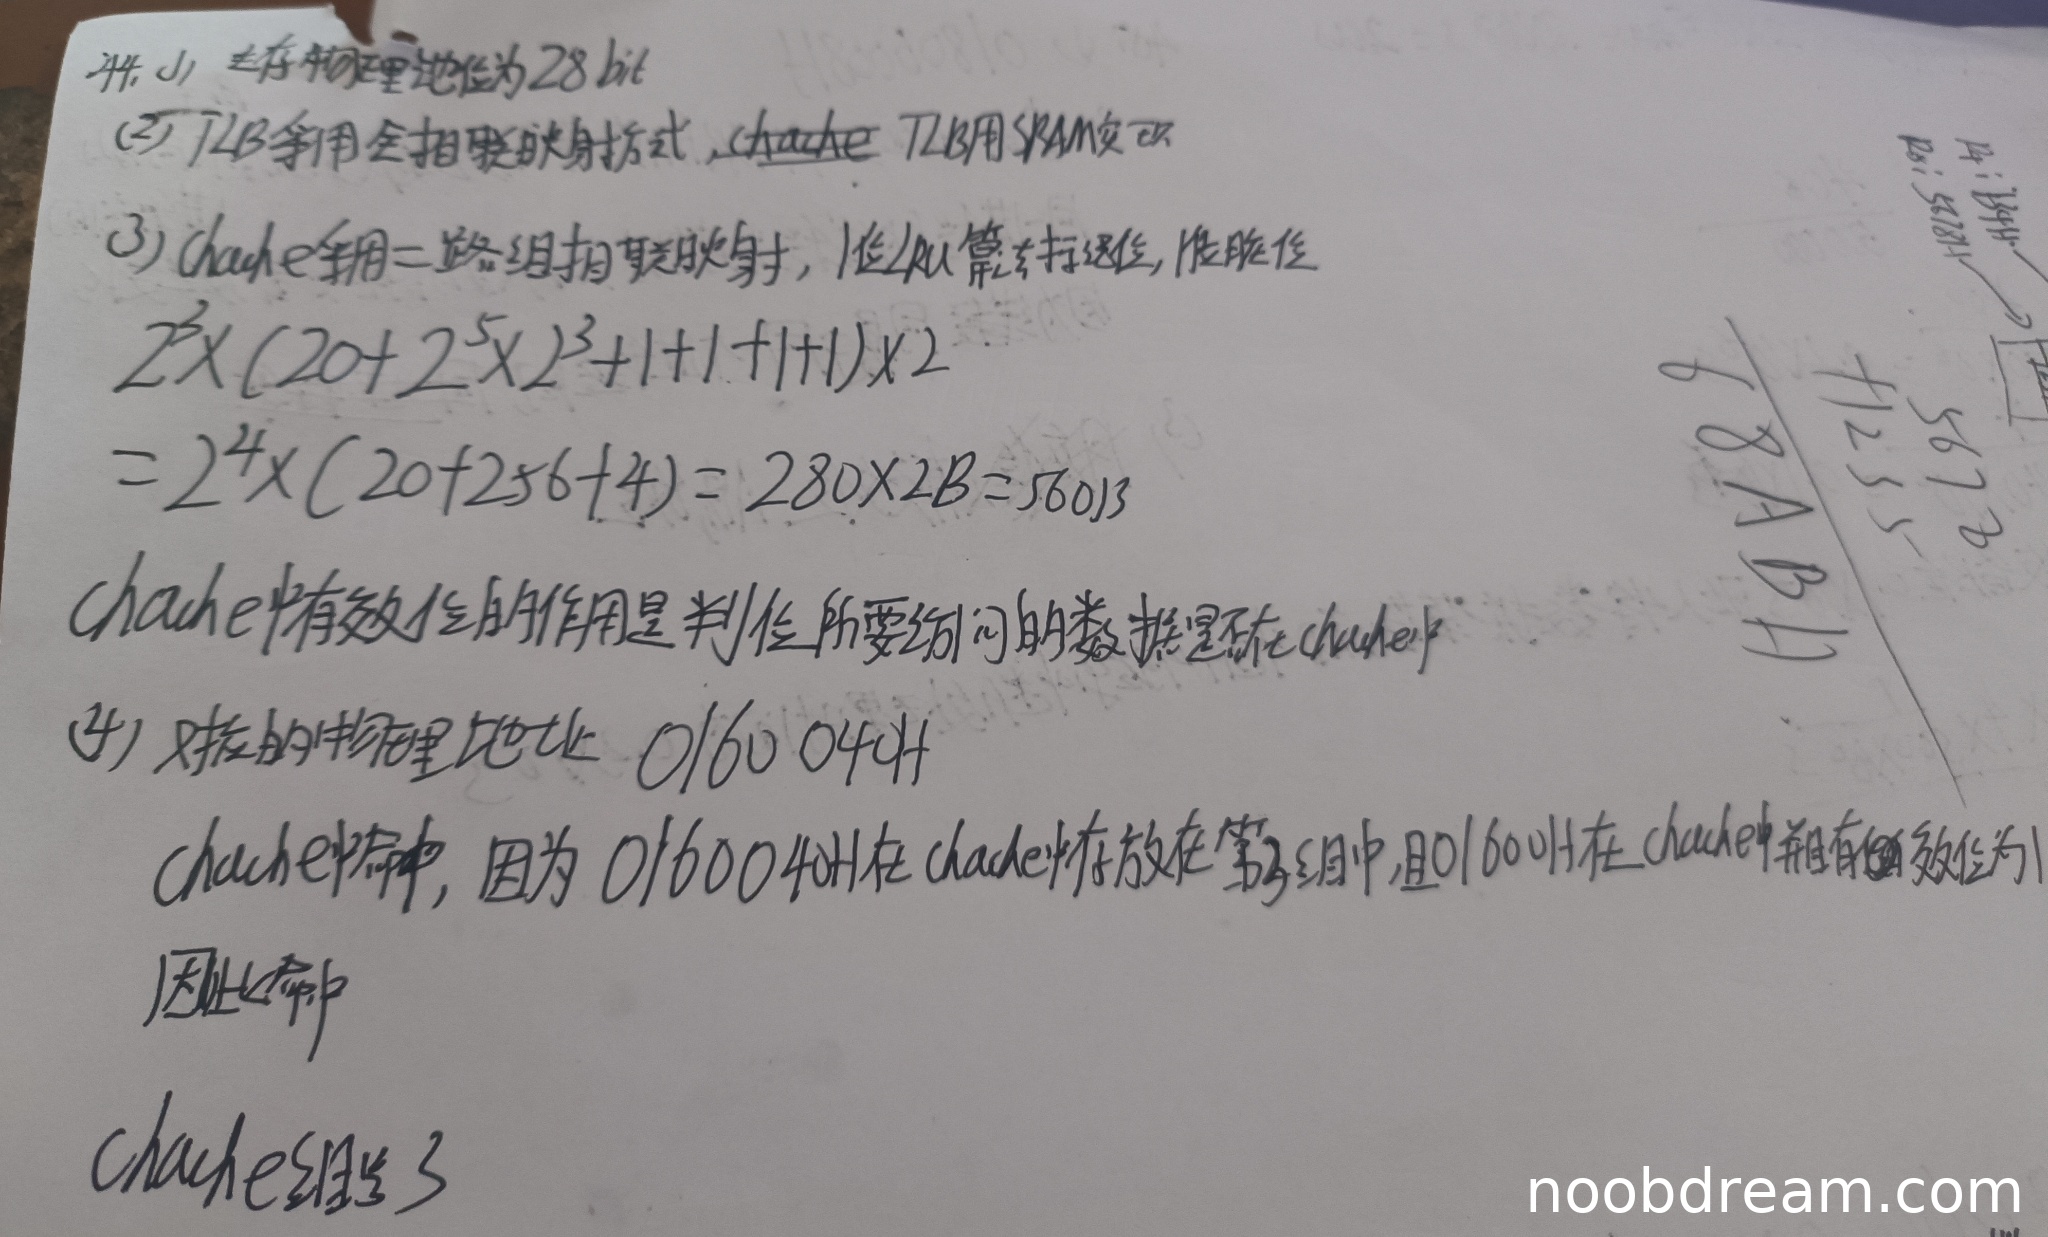 44. (1) 主存物理地位为28bit
(2) TLB采用全相联映射方式, chache TLB用SRAM实现
(3) Chache采用二路组相联映射, 1位LRU算法标选位, 1位脏位
2³×(20+2⁵×2³+1+1+1+1)×2
=2⁴×(20+256+4)=280×2B=560B
Chache中有效位的作用是判位所要访问的数据是否在chache中
(4) 对应的物理地址 0160040H
chache命中, 因为0160040H在chache中存放在第3组中,且01600H在chache中并且有效位为1
因此命中
Chache组号3
R1: 1234H
R2: 5678H
5678
+1233
68ABH
noobdream.com